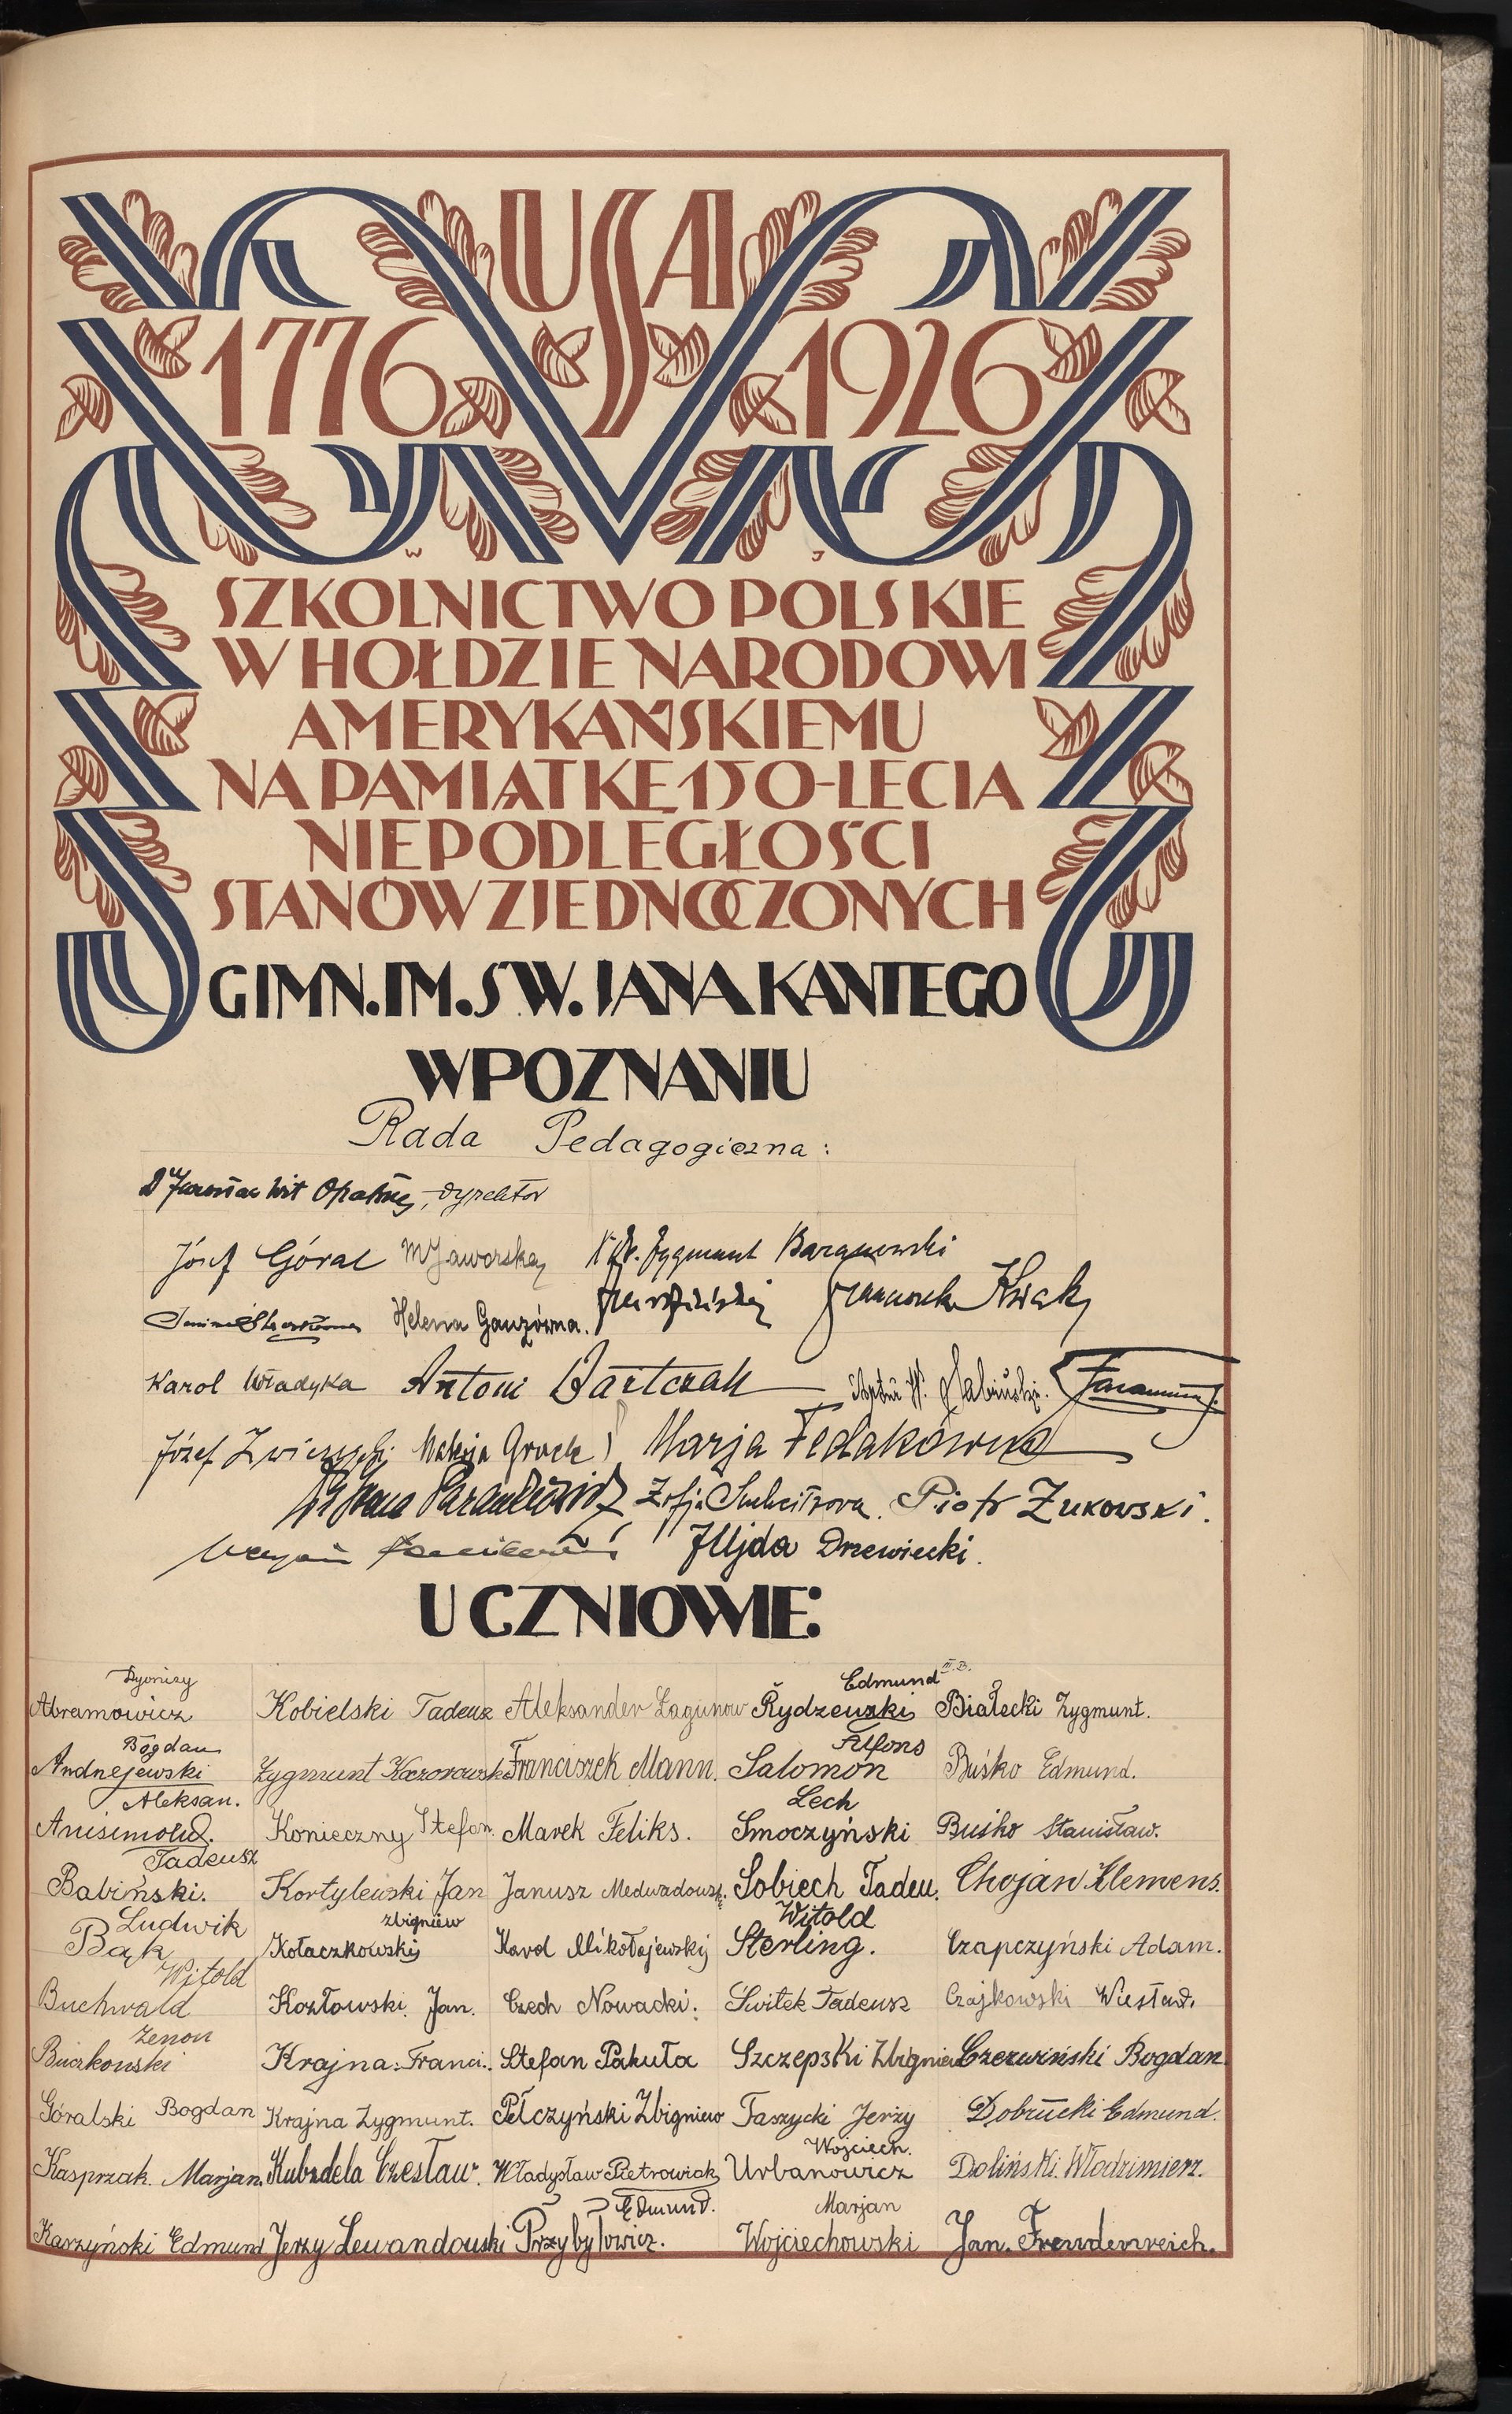 USA
1776 1926
W J
SZKOLNICTWO POLSKIE
W HOŁDZIE NARODOWI
AMERYKAŃSKIEMU
NA PAMIĄTKĘ 150-LECIA
NIEPODLEGŁOŚCI
STANÓW ZJEDNOCZONYCH
GIMN. IM. ŚW. JANA KANTEGO
W POZNANIU
Rada Pedagogiczna:
Dr Wit dyrektor
Józef Góral MJaworska X Dr. Zygmunt Baranowski
Helena Gauzówna. Kwiak
Karol Władyka Antoni Bartczak
Józef Marja Fedakówna
Zofja Piotr Żukowski.
Drzewiecki.
UCZNIOWIE:
Dyonizy Abramowicz Kobielski Tadeusz Aleksander Łagunow Edmund Rydzewski III.B. Białecki Zygmunt.
Bogdan Andrzejewski Zygmunt Franciszek Mann. Alfons Salomon Buśko Edmund.
Aleksan. Anisimow. Konieczny Stefan Marek Feliks. Lech Smoczyński Buśko Stanisław.
Tadeusz Babiński. Kortylewski Jan Janusz Sobiech Tadeu. Chojan Klemens.
Ludwik Bąk Zbigniew Kołaczkowski Karol Mikołajewski Witold Sterling. Czapczyński Adam.
Witold Buchwald Kozłowski Jan. Czech Nowacki. Świtek Tadeusz Czajkowski Wiesław.
Zenon Buczkowski Krajna Franci. Stefan Pakuła Szczepski Zbigniew Czerwiński Bogdan.
Góralski Bogdan Krajna Zygmunt. Pełczyński Zbigniew Taszycki Jerzy Dobrucki Edmund.
Kasprzak Marjan. Kubzdela Czesław. Władysław Pietrowiak Wojciech. Urbanowicz Doliński Włodzimierz.
Karzyński Edmund Jerzy Lewandowski Edmund. Przybyłowicz. Marjan Wojciechowski Jan. Freudenreich.